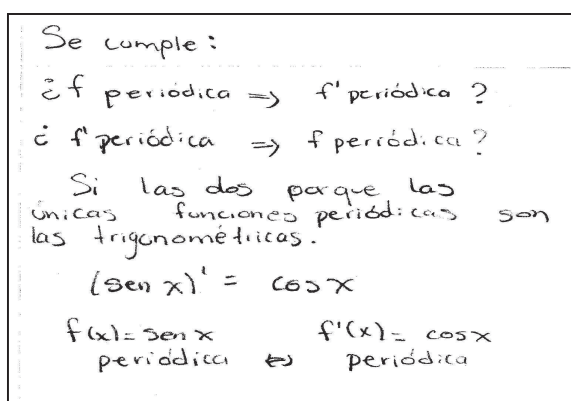 Se cumple:
¿f periódica => f' periódica?
¿ f' periódica => f periódica?
Si las dos porque las
únicas funciones periódicas son
las trigonométricas.
(sen x)' = cos x
f(x) = sen x f'(x) = cos x
periódica <=> periódica